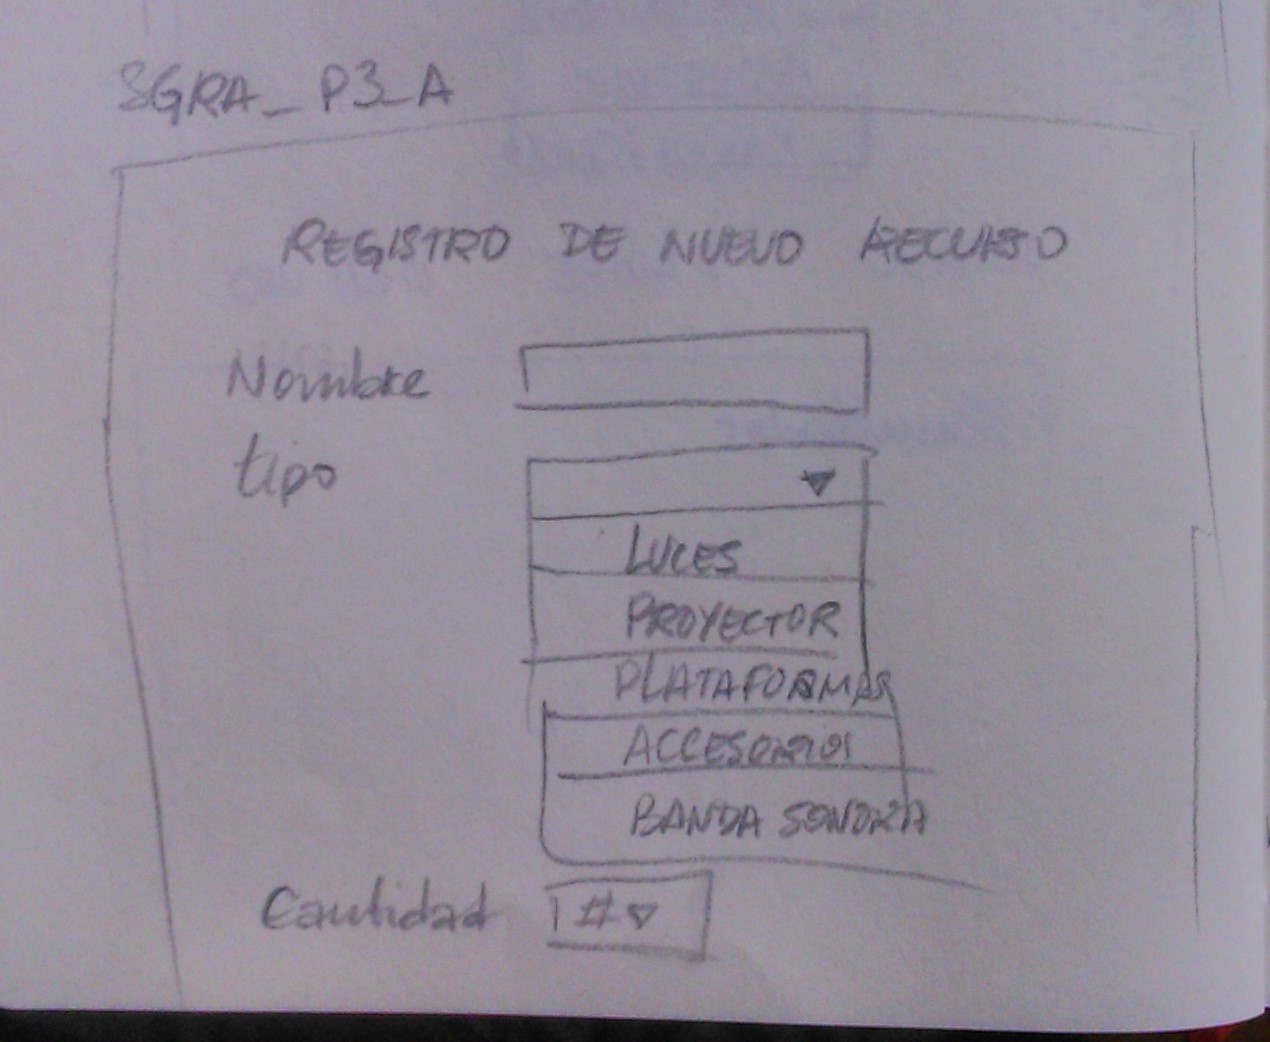 SGRA_P3_A
REGISTRO DE NUEVO RECURSO
Nombre
tipo
LUCES
PROYECTOR
PLATAFORMAS
ACCESORIOS
BANDA SONORA
Cantidad #